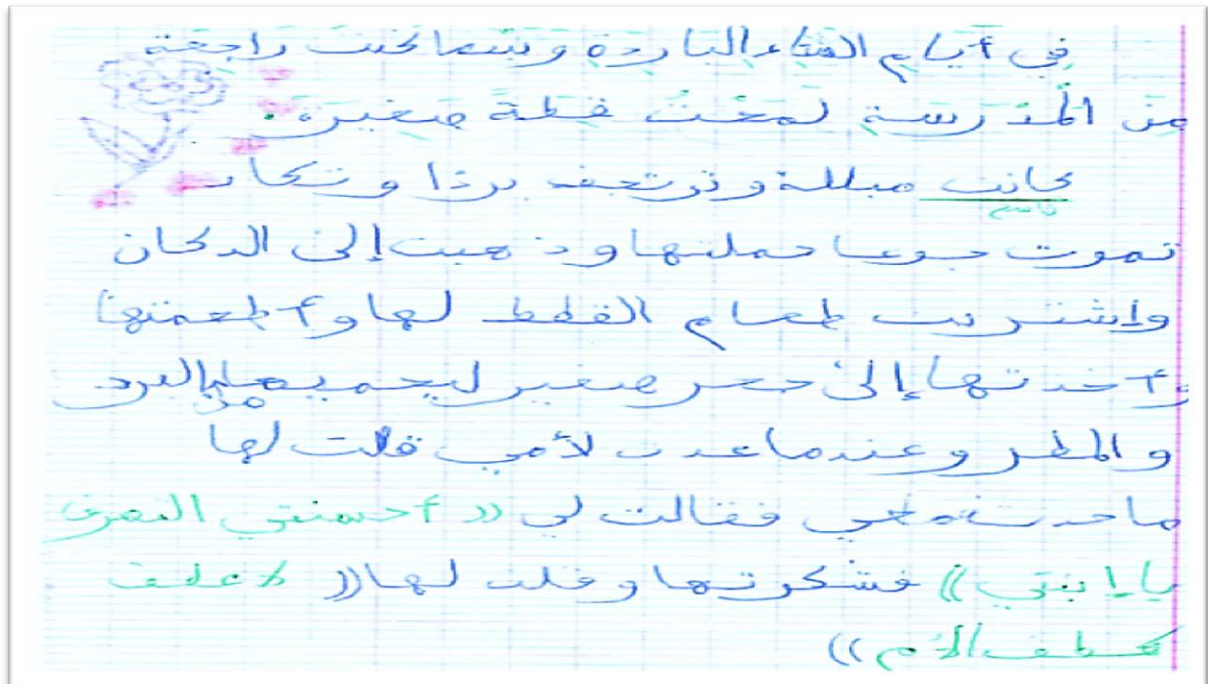 في أيام الشتاء الباردة وبينما كنت راجعة
مِنَ الْمَدْرَسَةِ لَمَحْتُ قِطَةً صَغِيرَةً.
كانت مبللة وترتجف بردا وتكاد
تموت جوعا حملتها وذهبت إلى الدكان
وإشتريت طعام القطط لها وأطعمتها
وأخدتها إلى جحر صغير ليحميها من البرد
والمطر وعندما عدت لأمي قلت لها
ما حدث معي فقالت لي ((أحسنتي التصرف
يا إبنتي)) فشكرتها وقلت لها ((لا عطف
كعطف الأم))